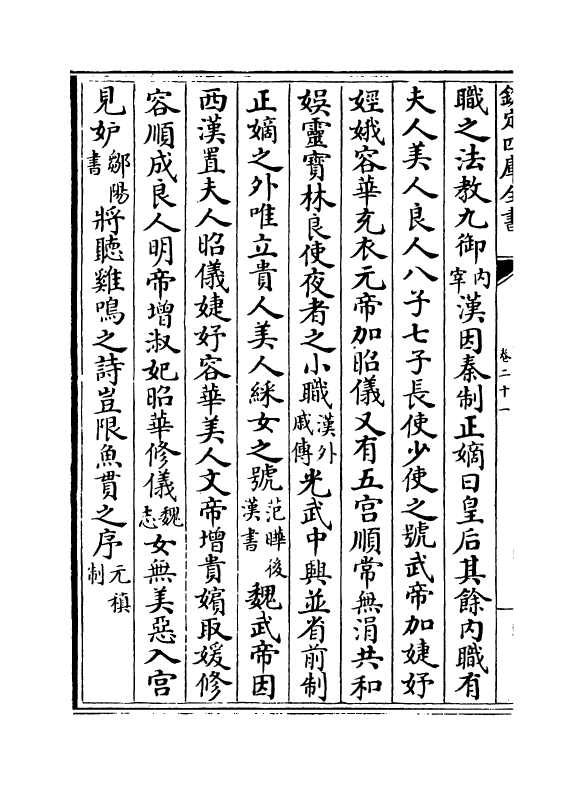 欽定四庫全書
卷二十一
職之法教九御內宰漢因秦制正嫡曰皇后其餘內職有
夫人美人良人八子七子長使少使之號武帝加婕妤
娙娥容華充衣元帝加昭儀又有五官順常無涓共和
娯靈寶林良使夜者之小職漢外戚傳光武中興並省前制
正嫡之外唯立貴人美人綵女之號范曄後漢書魏武帝因
西漢置夫人昭儀婕妤容華美人文帝增貴嬪取媛修
容順成良人明帝增淑妃昭華修儀魏志女無美惡入宮
見妒鄒陽書將聽雞鳴之詩豈限魚貫之序元稹制